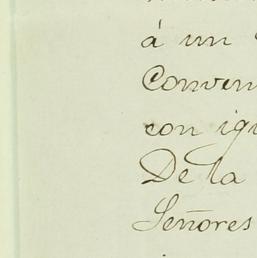 á un
Conven
con igu
De la
Señores